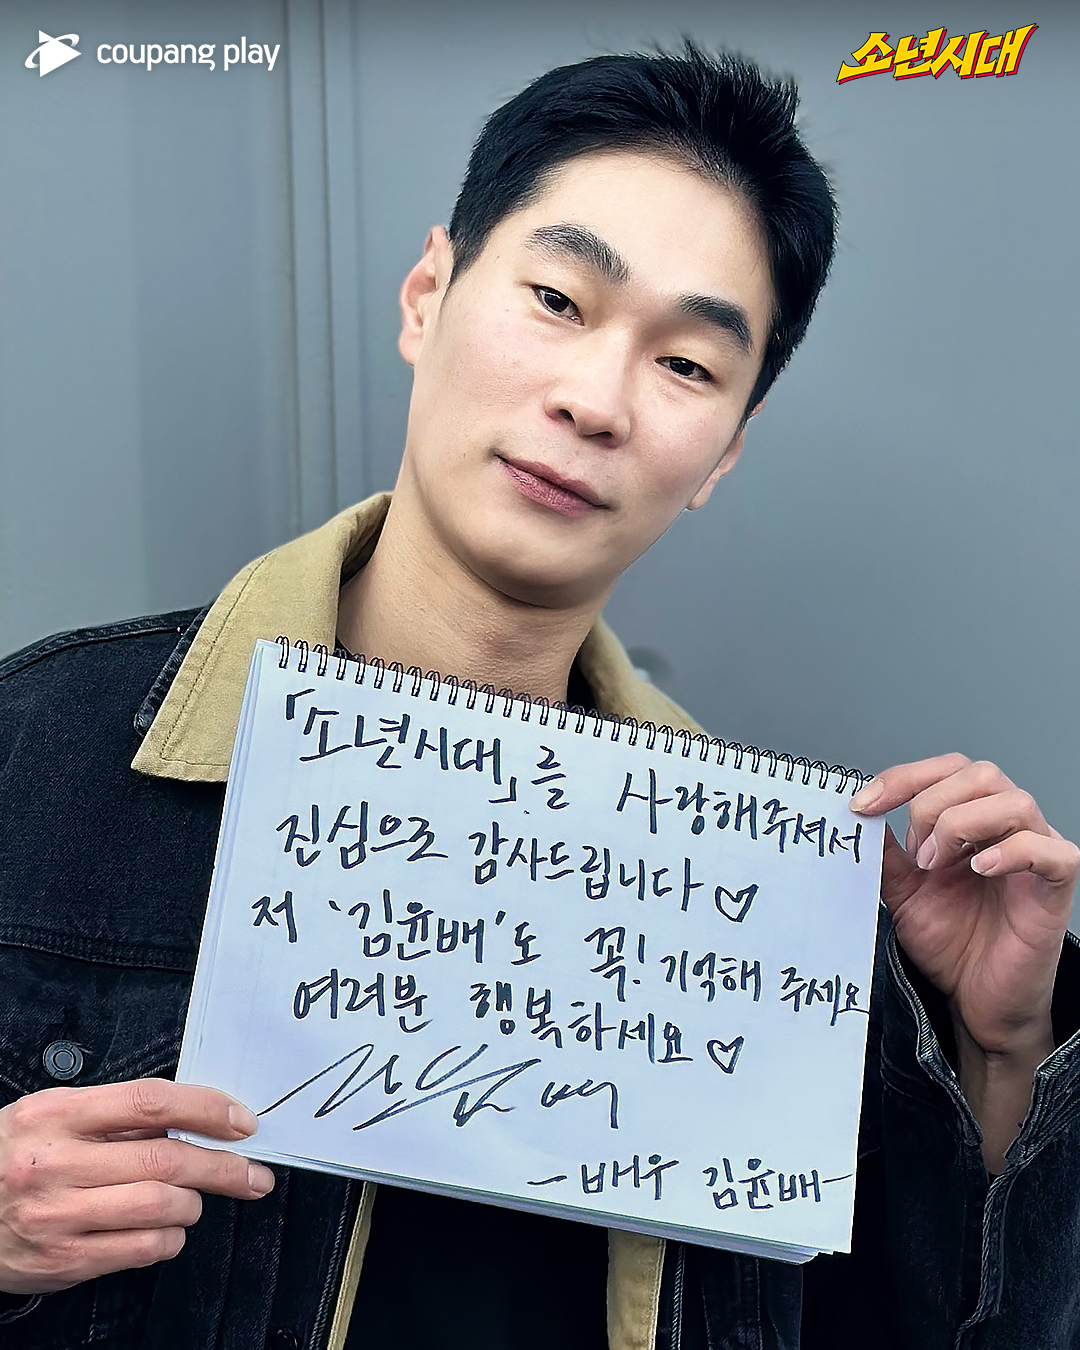 coupang play
소년시대
「소년시대」를 사랑해주셔서
진심으로 감사드립니다♡
저 '김윤배'도 꼭! 기억해 주세요
여러분 행복하세요♡
-배우 김윤배-